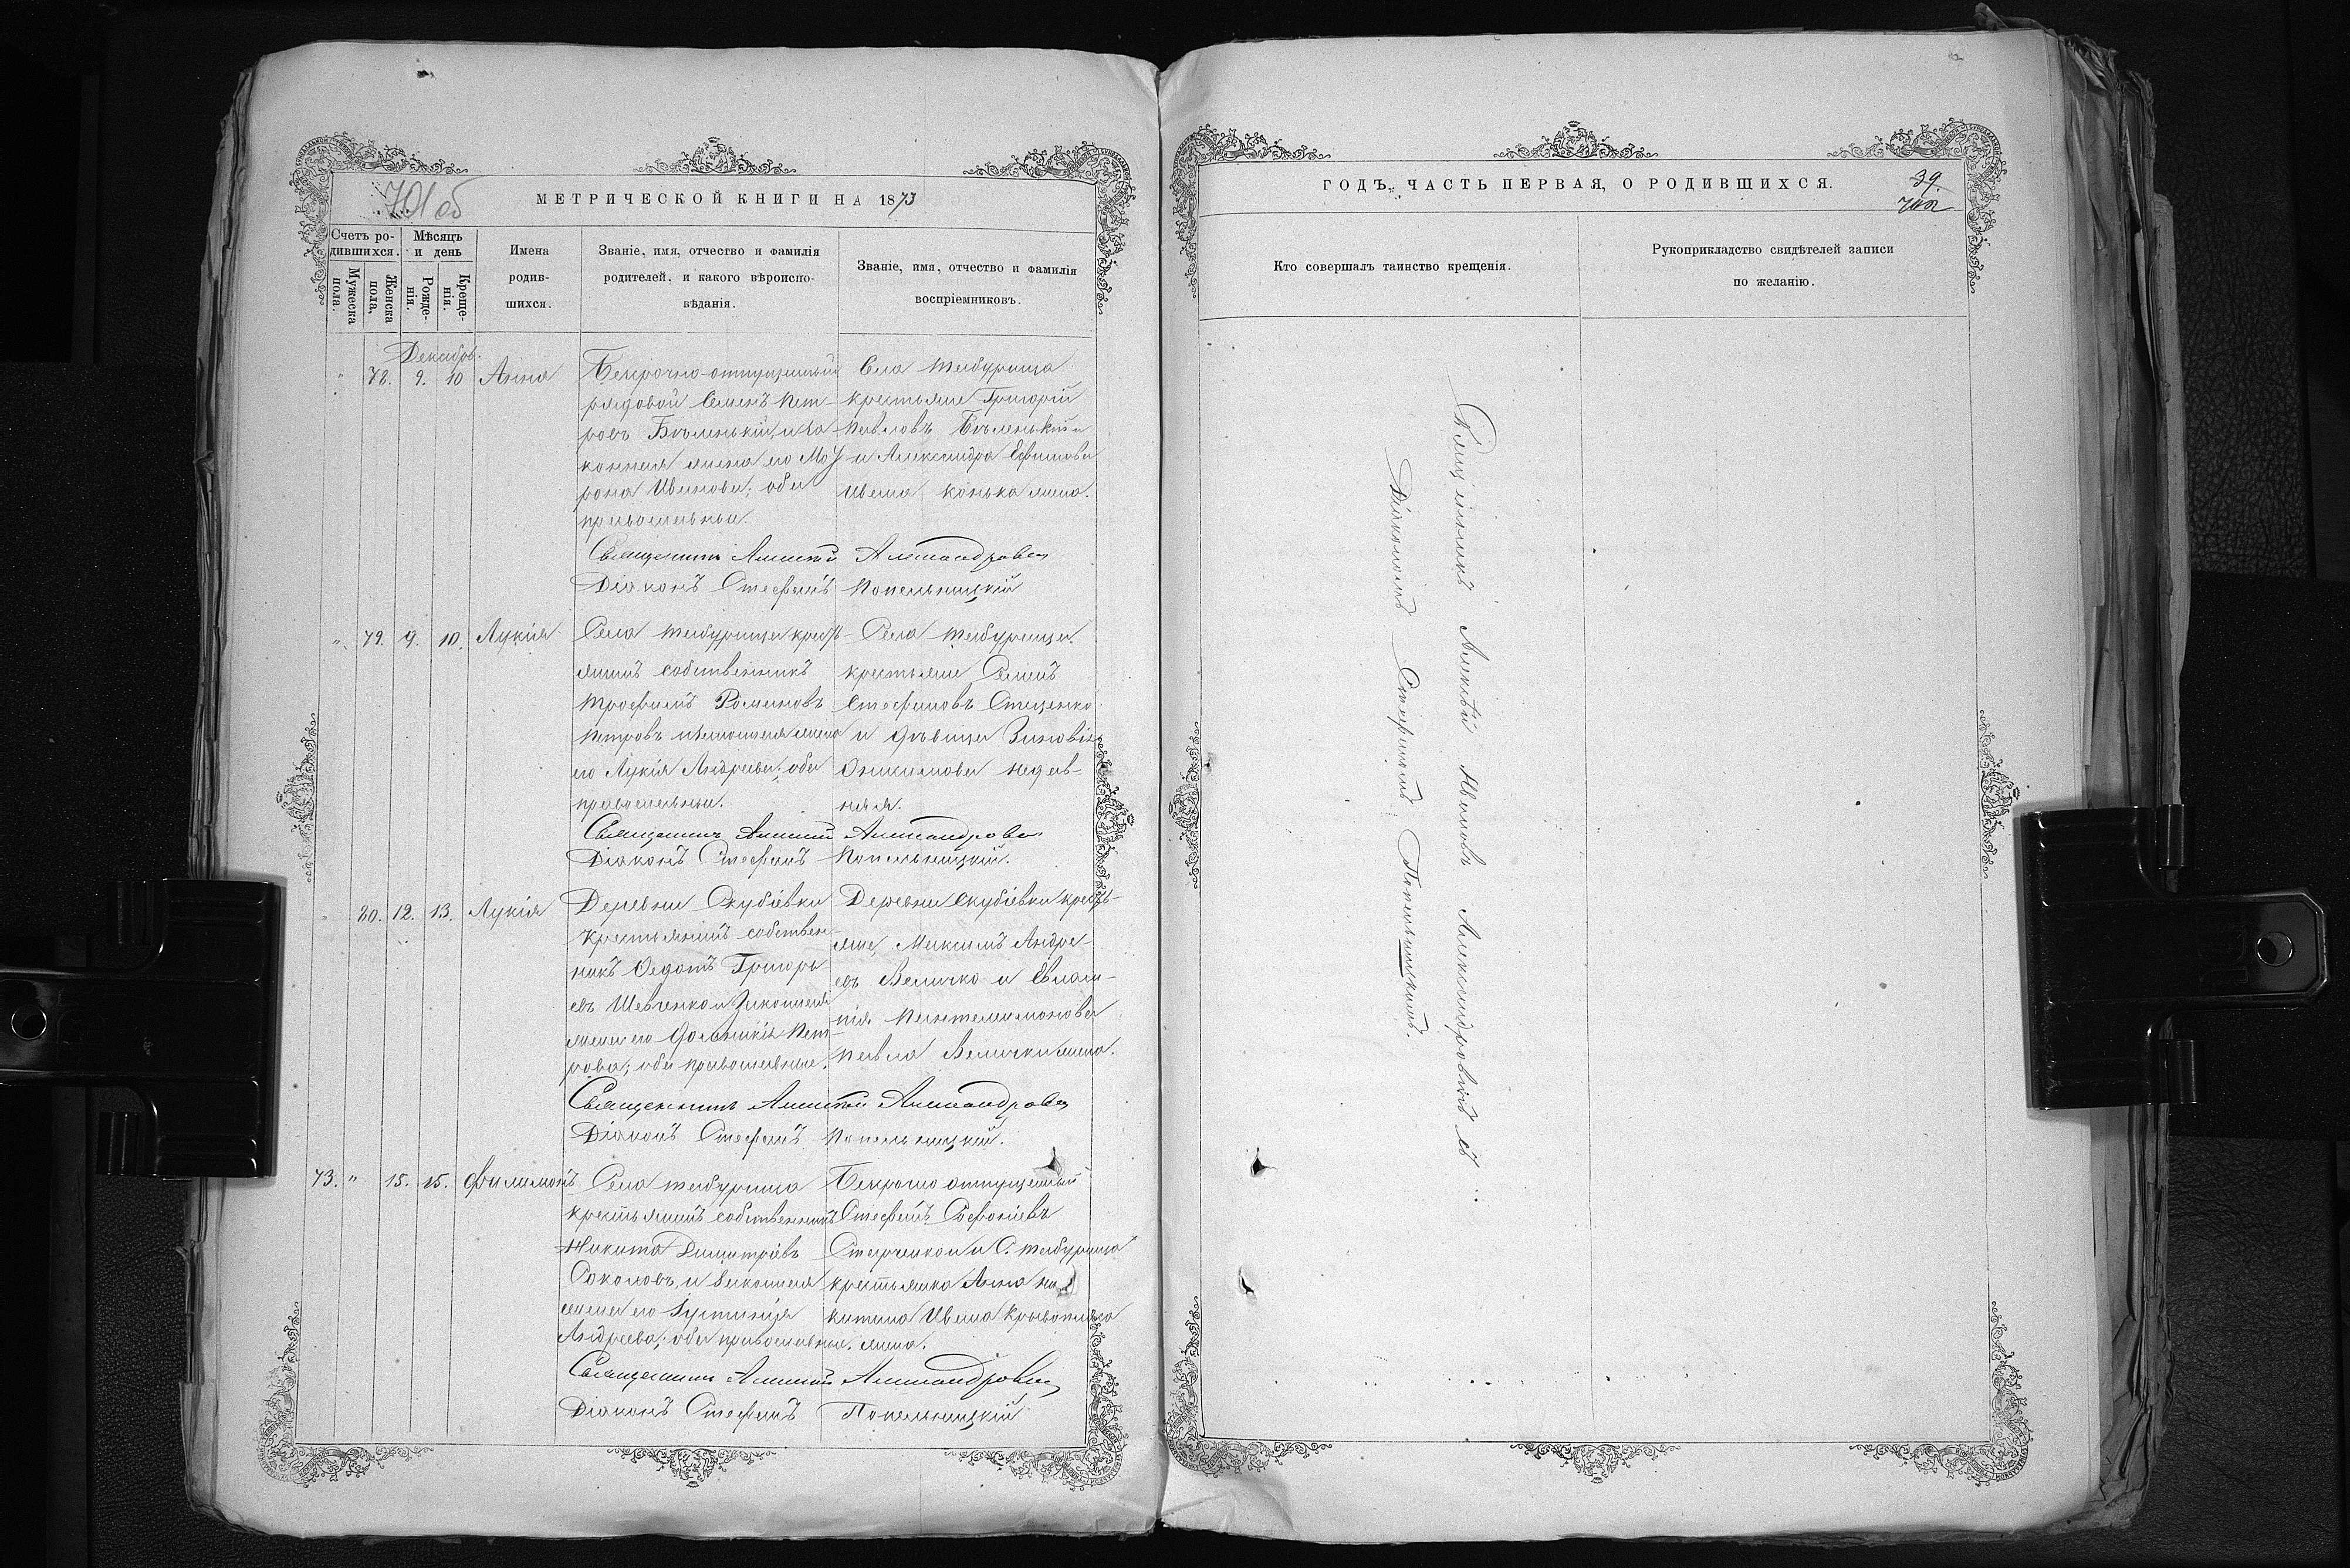 701 об
МЕТРИЧЕСКОЙ КНИГИ НА 1873
Счетъ ро-
дившихся.
Мужеска
пола.
Женска
пола,
Мѣсяцъ
и день
Рожде-
нія.
Креще-
нія.
Имена
родив-
шихся.
Званіе, имя, отчество и фамилія
родителей, и какого вѣроиспо-
вѣданія.
Званіе, имя, отчество и фамилія
воспріемниковъ.
Декабрь
" 78. 9. 10 Анна
Безсрочно-отпускный
рядовой Семенъ Пет-
ровъ Бѣленькій, и за-
конная жена его Мот-
рона Иванова; оба
православныи.
Села Тимбурища
крестьяне Григорій
Павловъ Бѣленькій
и Александра Ефимова
Ивана Конька жена.
Священникъ Алексій Александровъ
Діаконъ Стефанъ Попельницкій
" 79. 9. 10. Лукія
Села крестъ-
янинъ собственникъ
Трофимъ Романовъ
Петровъ и законная жена
его Лукія Андреева; оба
православныи.
Села
крестьяне Семенъ
Стефановъ Стеценко
и дѣвица Зиновія
Онисимова
ная.
Священникъ Алексій Александровъ
Діаконъ Стефанъ Попельницкій.
" 80. 12. 13. Лукія
Деревни Скубіевки
крестьянинъ собствен-
никъ Федотъ Григорь-
евъ Шевченко и законная
жена его Домникія Пет-
рова; оба православные.
Деревни Скубіевки кресть-
яне, Максимъ Андре-
евъ Величко и Евлам-
пія Пантелимонова
Павла Велички жена.
Священникъ Алексій Александровъ
Діаконъ Стефанъ Попельницкій.
73. " 15. 15. Филимонъ
Села
крестьянинъ собственникъ
Никита Димитріевъ
Соколовъ, и законная
жена его Іустинія
Андреева; оба православные.
Безсрочно отпускный
Стефанъ Софоніевъ
Старченко и С.
крестьянка Анна Ни-
китина Ивана
жена.
Священникъ Алексій Александровъ
Діаконъ Стефанъ Попельницкій
ГОДЪ, ЧАСТЬ ПЕРВАЯ, О РОДИВШИХСЯ.
39.
702
Кто совершалъ таинство крещенія.
Рукоприкладство свидѣтелей записи
по желанію.
Священникъ Алексѣй Ивановъ Александровичъ съ
Діакономъ Стефаномъ Попельницкимъ.